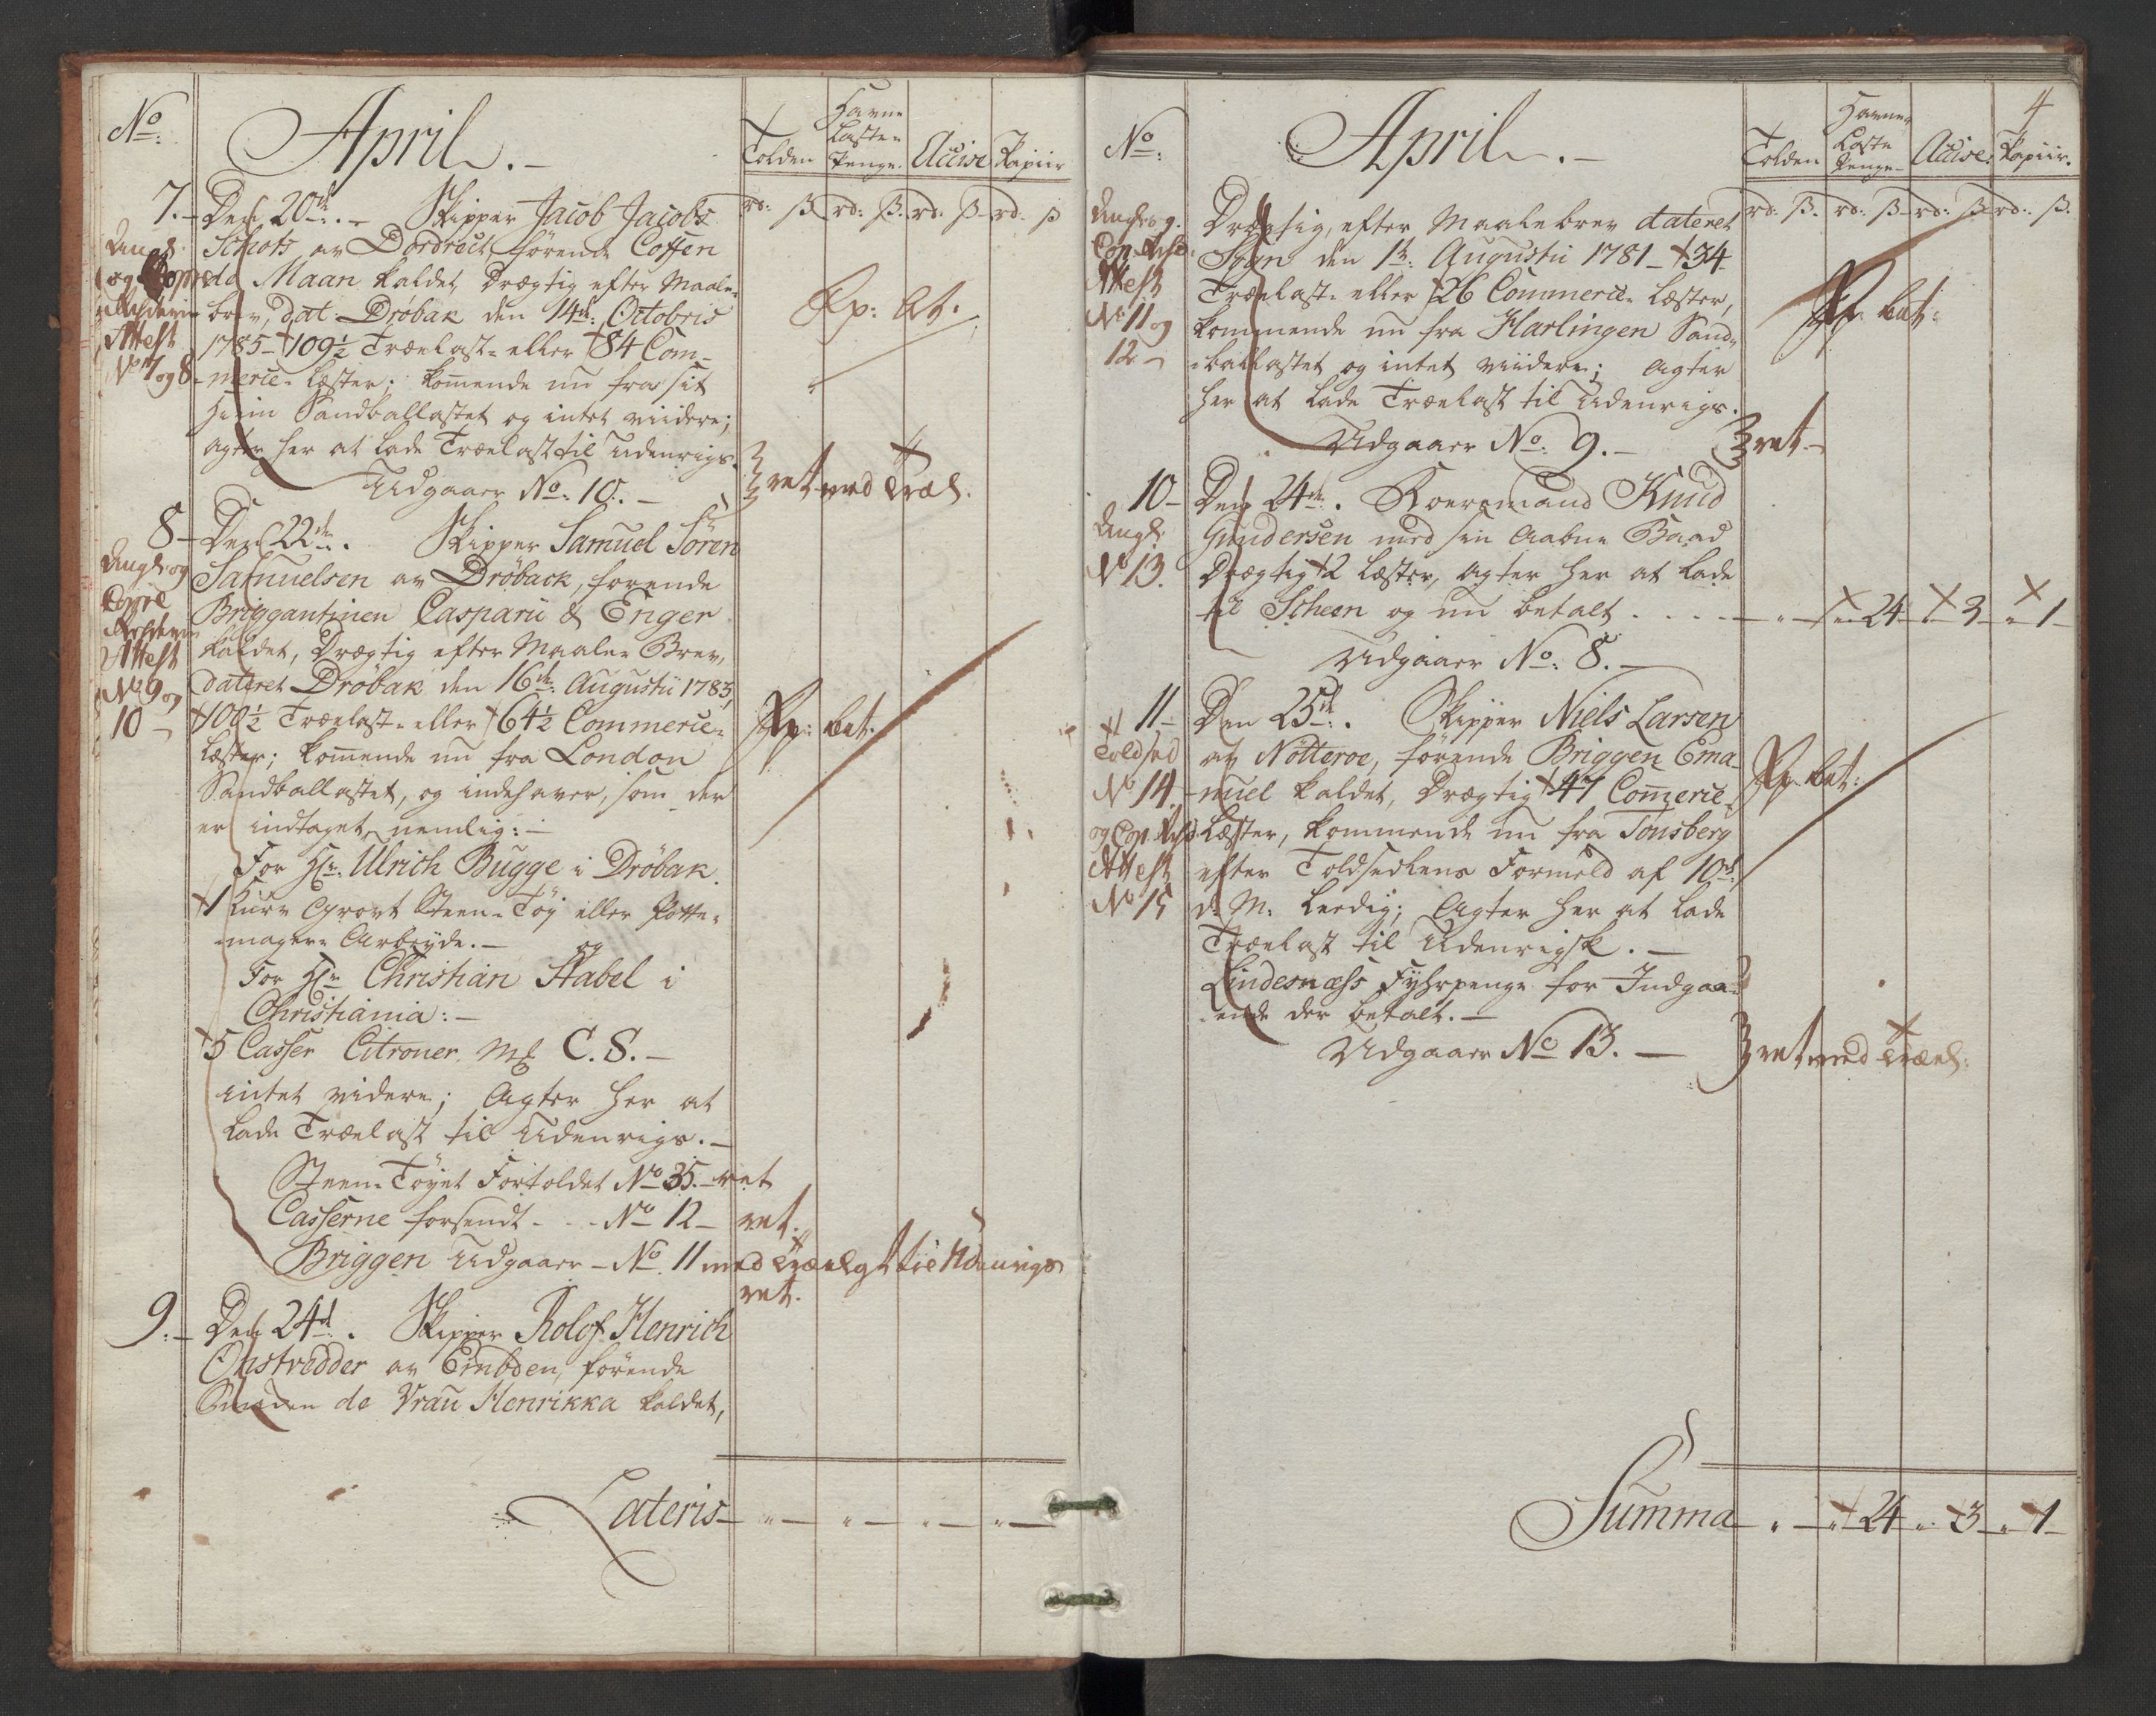 No:
April.-
Tolden
Havne
Laste
Penge
Accise
Papiir
rd: ß rd: ß. rd. ß rd. ß
7.- Den 20de.- Skipper Jacob Jacobs
Schots av Dordrect, førende Coffen
da Maan kaldet, Drægtig efter Maale-
brev, dat. Dröbak den 14de: Octobris
1785 - 109½ Trælast- eller 84 Com-
mercie- Læster; kom̄ende nu fra sit
Hiem Sandballastet og intet viidere;
agter her at lade Trælast til Udenrigs.
Udgaaer No: 10.-
og Copie
Attest
No 7 og 8
Rp: bt.
ret med Træl.
8- Den 22de. Skipper Samuel Sören
Samuelsen av Dröback, førende
Briggantinen Casparü & Enger
kaldet, Drægtig efter Maale- Brev,
dateret Dröbak den 16de: Augustii 1783,
100½ Trælast- eller 64½ Commercie-
Læster; kom̄ende nu fra London
Sandballastet, og indehaver, som der
er indtaget, nemlig:-
For Hr. Ulrich Bugge i Dröbak.
1 Kurv Grovt Steen- Töy eller Potte-
mager- Arbeyde.- og
For Hr Christian Stabel i
Christiania:-
5 Casser Citroner. Mk C.S.-
intet videre; Agter her at
lade Trælast til Udenrigs.-
Steen- Töyet Fortoldet No 35.- ret
Casserne forsendt - - - No 12 - ret.
Briggen Udgaaer - No 11 med Trælast til Udenrigs
ret.
og
Copie
Attest
No 9 og
10
Rp: bet.
9.- Den 24d. Skipper Rolof Henrich
Onstvedder av Embden, førende
Smakken de Vrau Henrikka kaldet,
Lateris
4
No:
April.-
Tolden
Havne
Laste
Penge
Accise
Papiir.
rd: ß. rd: ß rd: ß rd: ß.
Drægtig, efter Maalebrev dateret
den 1te: Augustii 1781 - 34
Trælast- eller 26 Commercie- Læster,
kommende nu fra Harlingen Sand-
ballastet og intet viidere; agter
her at lade Trælast til Udenrigs.
Udgaaer No: 9.- ret-
Attest
No 11 og
12
Rp. bet:
10- Den 24de. Roersmand Knud
Gundersen med sin aabne Baad
Drægtig 2 Læster, agter her at lade
til Scheen og nu betalt - - - - 24 - 3 - 1
Udgaaer No: 8.-
No 13.
11- Den 25de. Skipper Niels Larsen
av Nötteroe, førende Briggen Ema-
nuel kaldet, Drægtig 47 Com̄ercie
Læster, kommende nu fra Tonsberg
efter Toldsedlens Formeld af 10de
d: M: Leedig; Agter her at lade
Trælast til Udenrigsk.-
Lindesnæss Fyhrpenge for Indgaa-
ende der betalt.-
Udgaaer No 13.- ret med Træl:
Toldsed
No 14
og Cop.
Attest
No 15
Rp. bet:
Summa - - 24 - 3 - 1